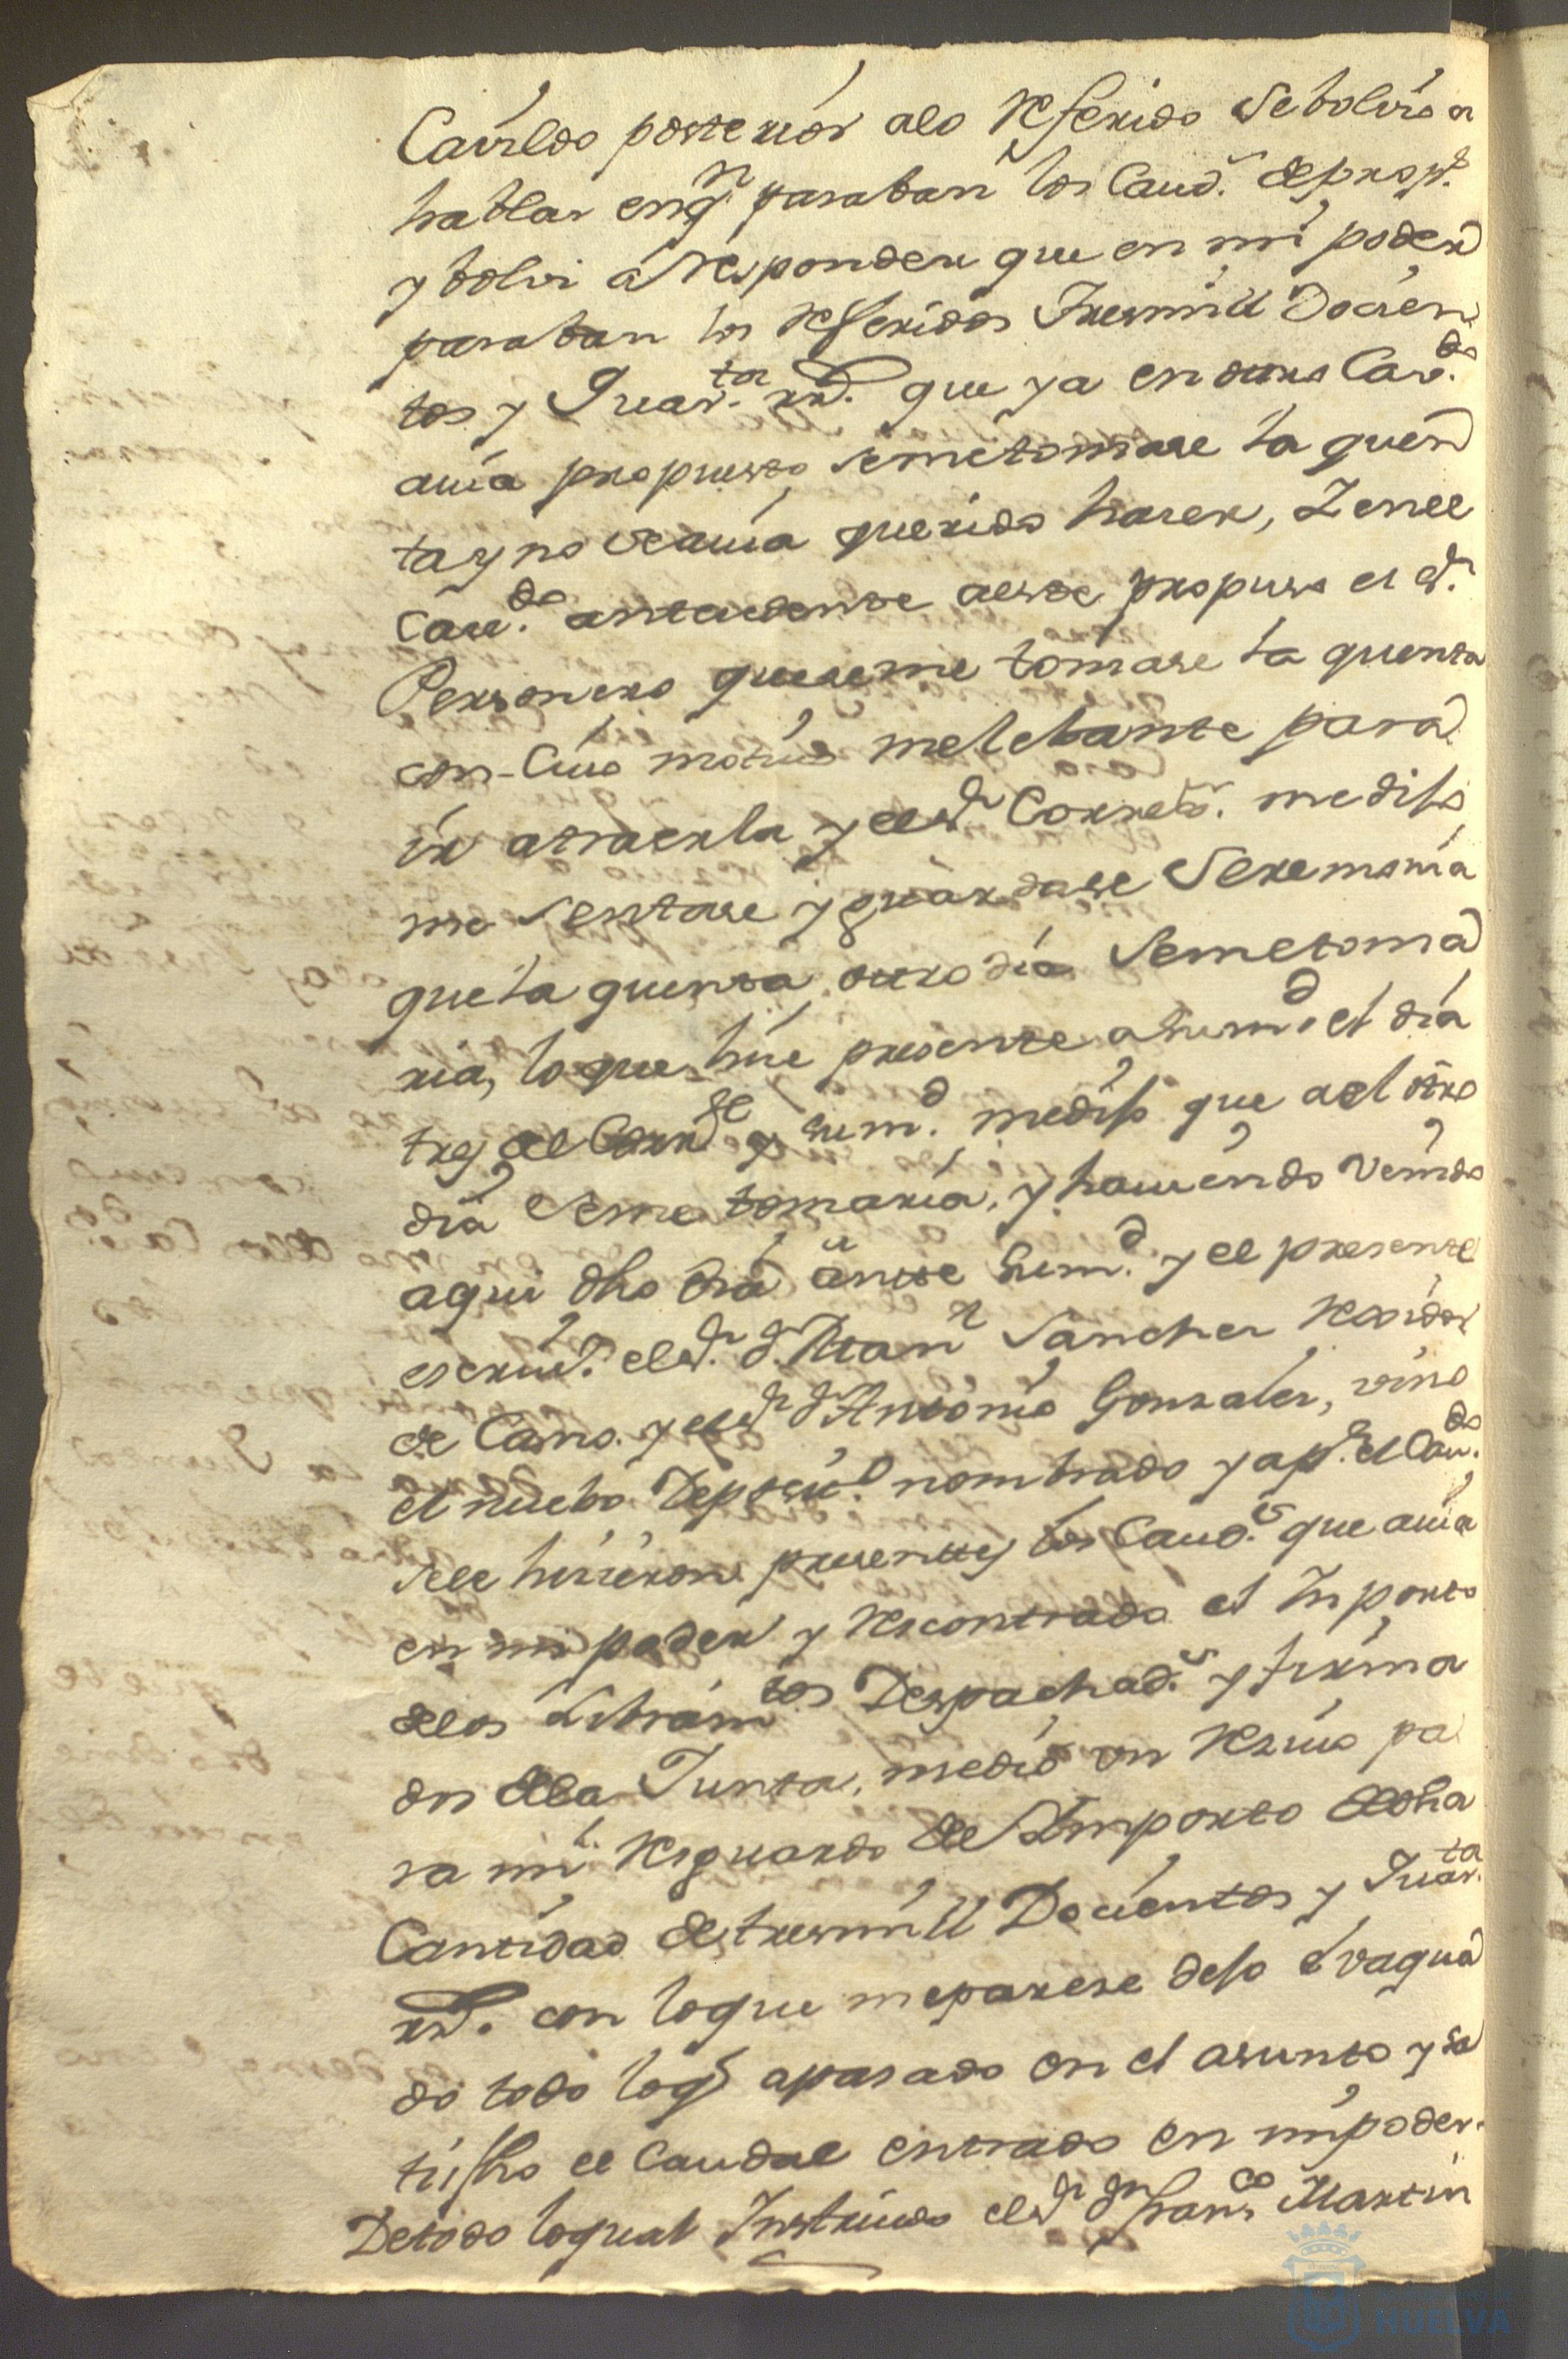 Cavildo posterior alo Referido Se bolvio a
hablar enqn paraban los Caud.s de prop.s
y bolvi a Responder que en mi poder
paraban los Referidos tresmill Docien
tos y Quar.ta rs. que ya en otros Cav.dos
avia propuesto semetomase la quen
ta y no se avia querido haser, Y en el
Cav.do antecedente aeste propuso el S.r
Personero queseme tomase la quenta
con Cuio motivo melebante para
ir atraerla y el S.r Corre.or medijo
me sentase y guardase Seremonia
que la quenta otro dia Semetoma
ria, lo que hise presente asumd el dia
tres del Corr.te y sum.d medijo que ael otro
dia Seme tomaria, y haviendo Venido
aqui dho dia ante sum.d y el presente
escriv.o el S.r d.n Man.l Sanchez Rexidor
de Cano. y el S.r d.n Antonio Gonzales, vino
el nuebo Deposit.o nombrado y ap.r el Cav.do
sele hisieron presentes los Caud.s que avia
en mi poder y Rescontrado el Inporto
delos Libram.tos Despachad.s y firma
dos dela Junta, medio un Resivo pa
ra mi Resguardo del Ymporto de dha
Cantidad de tresmill Docientos y Quar.ta
rs. con loque meparese dejo evaqua
do todo loq apasado en el asunto y sa
tisfho el Caudal entrado en mi poder.
Detodo loqual Instruido el S.r d.n Fran.co Martin
HUELVA